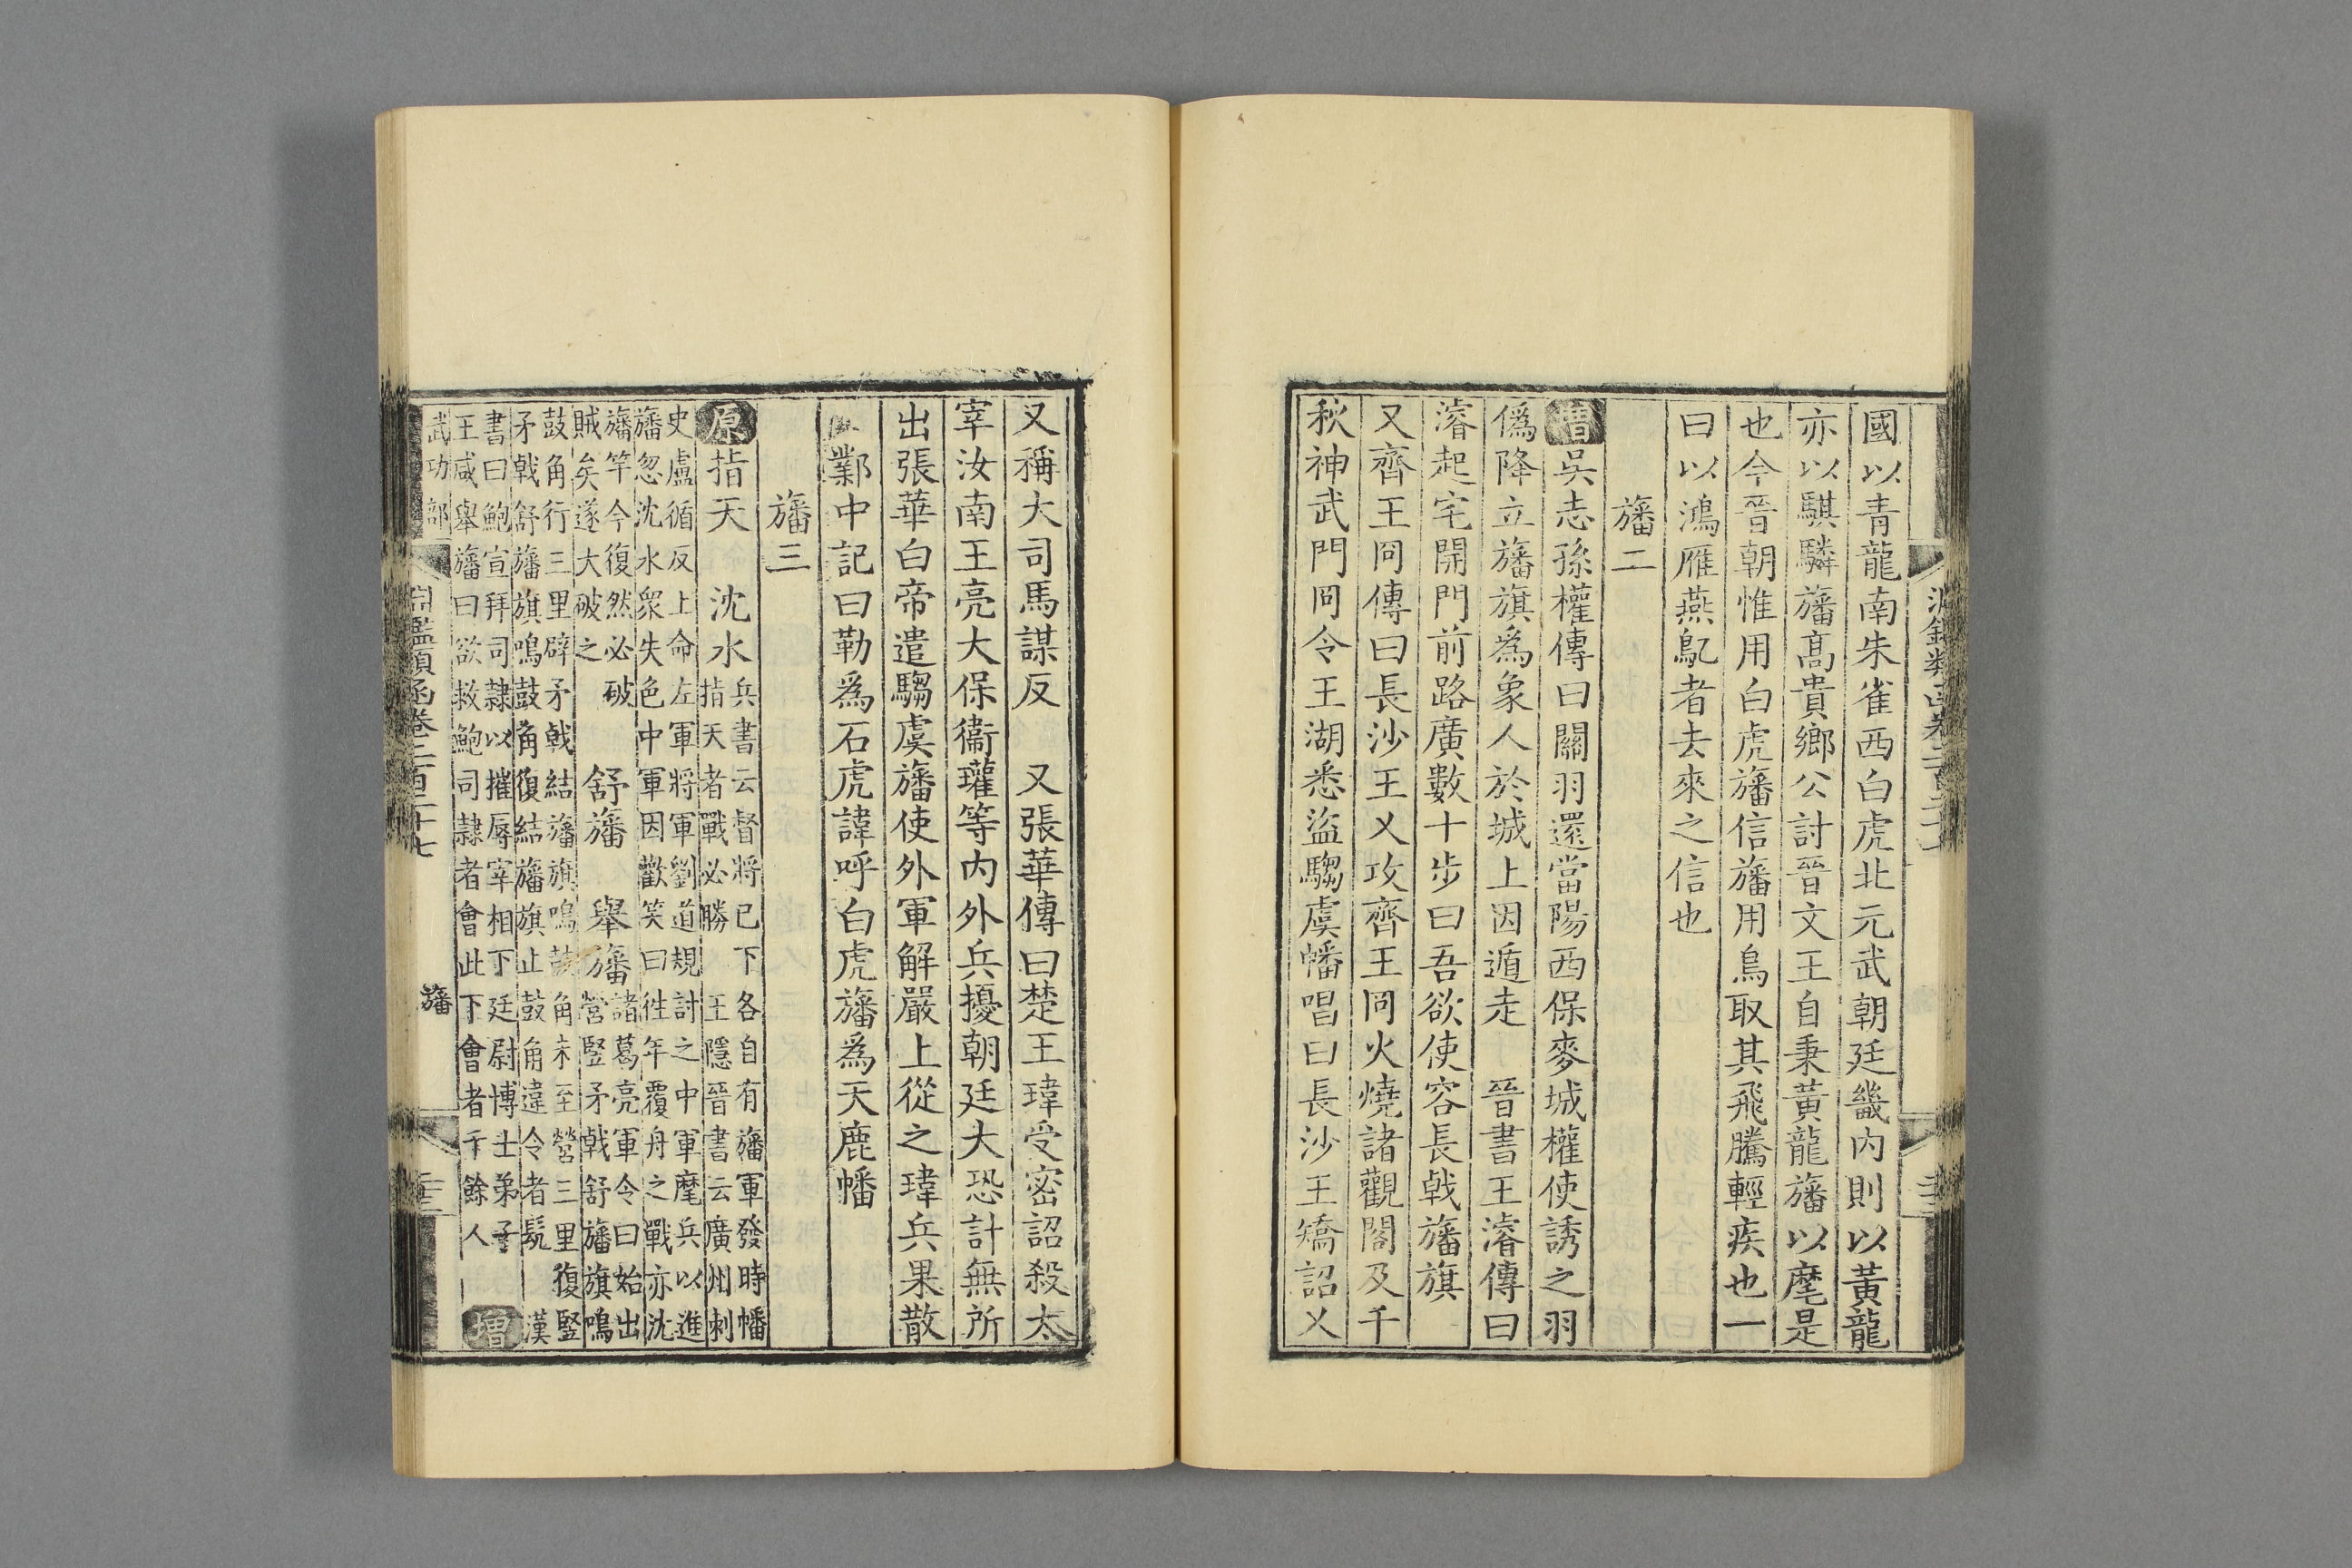 國以青龍南朱雀西白虎北元武朝廷畿内則以黃龍
亦以騏驎旛高貴鄉公討晉文王自秉黃龍旛以麾是
也今晉朝惟用白虎旛信旛用鳥取其飛騰輕疾也一
曰以鴻雁燕鳦者去來之信也
旛二
增吳志孫權傳曰關羽還當陽西保麥城權使誘之羽
僞降立旛旗爲象人於城上因遁走　晉書王濬傳曰
濬起宅開門前路廣數十步曰吾欲使容長戟旛旗
又齊王冏傳曰長沙王乂攻齊王冏火燒諸觀閣及千
秋神武門冏令王湖悉盜騶虞幡唱曰長沙王矯詔乂
又稱大司馬謀反　又張華傳曰楚王瑋受密詔殺太
宰汝南王亮大保衞瓘等内外兵擾朝廷大恐計無所
出張華白帝遣騶虞旛使外軍解嚴上從之瑋兵果散
鄴中記曰勒爲石虎諱呼白虎旛爲天鹿幡
旛三
原指天　沈水兵書云督將已下各自有旛軍發時幡
指天者戰必勝　王隱晉書云廣州刺
史盧循反上命左軍將軍劉道規討之中軍麾兵以進
旛忽沈水衆失色中軍因歡笑曰往年覆舟之戰亦沈
旛竿今復然必破
賊矣遂大破之
舒旛　舉旛諸葛亮軍令曰始出
營竪矛戟舒旛旗鳴
鼓角行三里辟矛戟結旛旗鳴鼓角未至營三里復竪
矛戟舒旛旗鳴鼓角復結旛旗止鼓角違令者髡　漢
書曰鮑宣拜司隸以摧辱宰相下廷尉博士弟子
王咸舉旛曰欲救鮑司隸者會此下會者千餘人
增
武功部
淵鑑類函卷二百二十七
旛